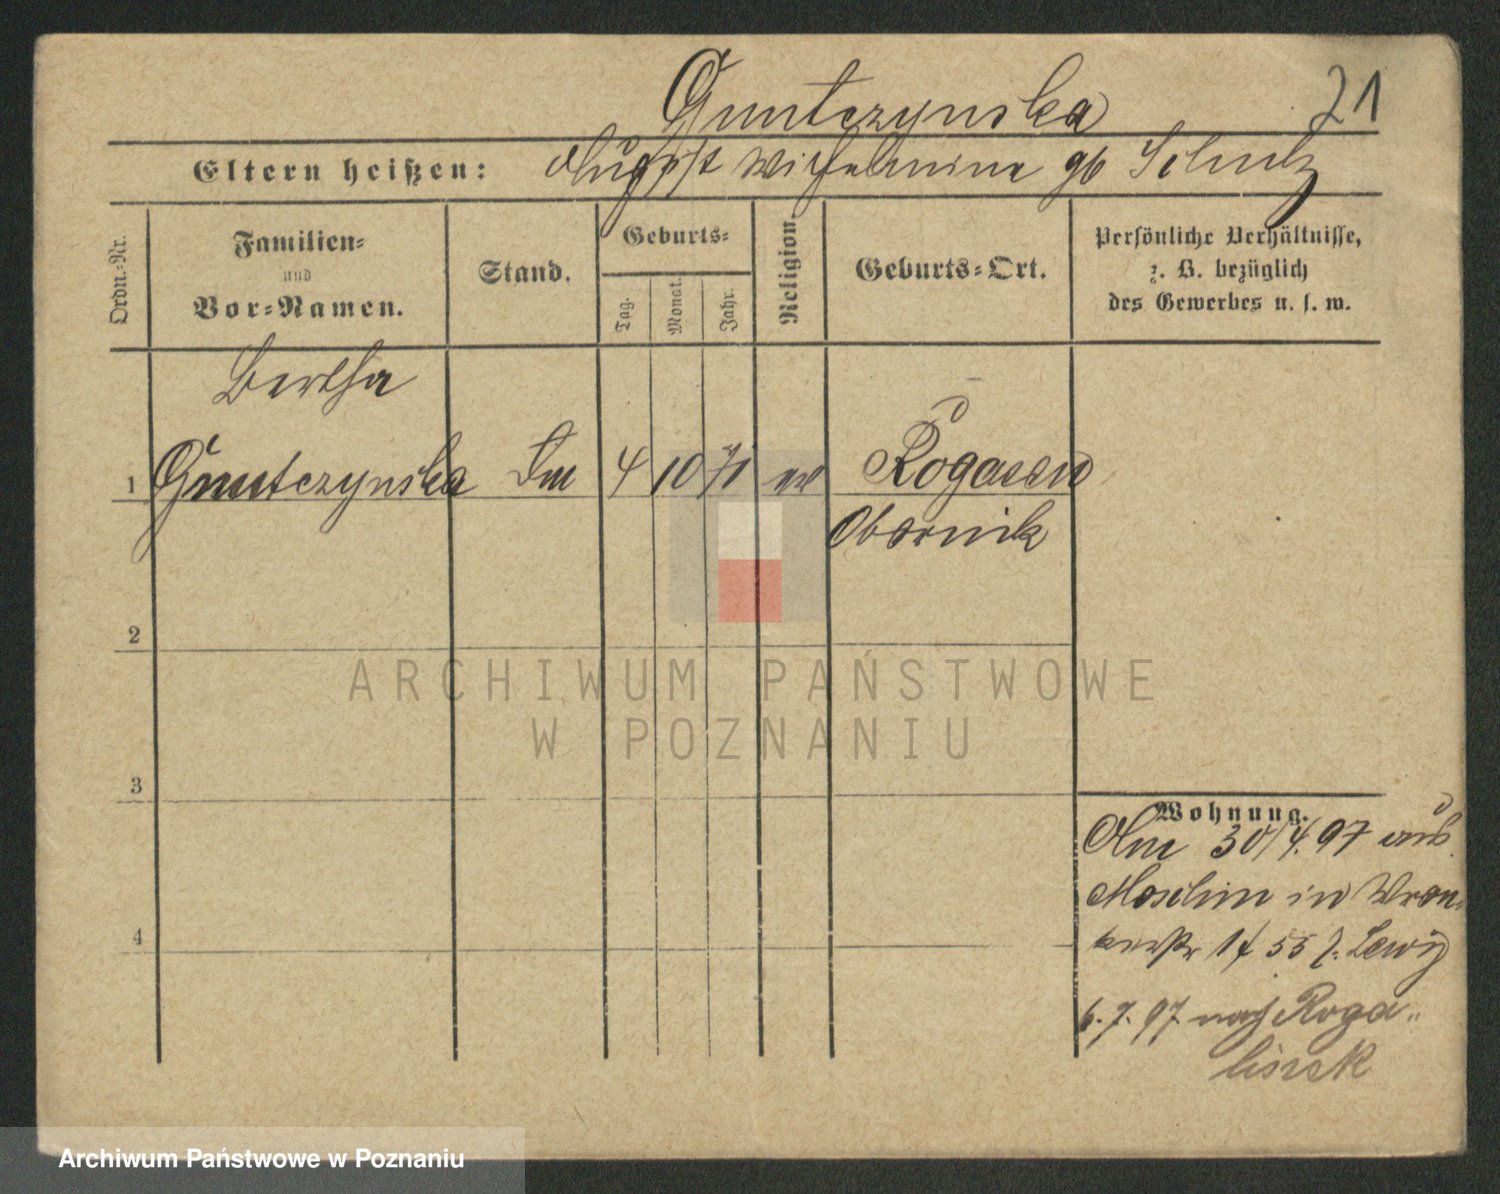 Guntczynska
21
Eltern heißen: August Wilhelmine gb Schulz
Ordn.-Nr.
Familien-
und
Vor-Namen.
Stand.
Geburts-
Tag.
Monat.
Jahr.
Religion.
Geburts-Ort.
Persönliche Verhältnisse,
z. B. bezüglich
des Gewerbes u. s. w.
Bertha
1 Guntczynska 4 10 71 Rogasen
Obornik
2
ARCHIWUM PAŃSTWOWE
W POZNANIU
3
Wohnung.
Am 30/4.97 aus
Moschin in Wron-
55 Lewy
6.7.97 nach Roga-
4
Archiwum Państwowe w Poznaniu